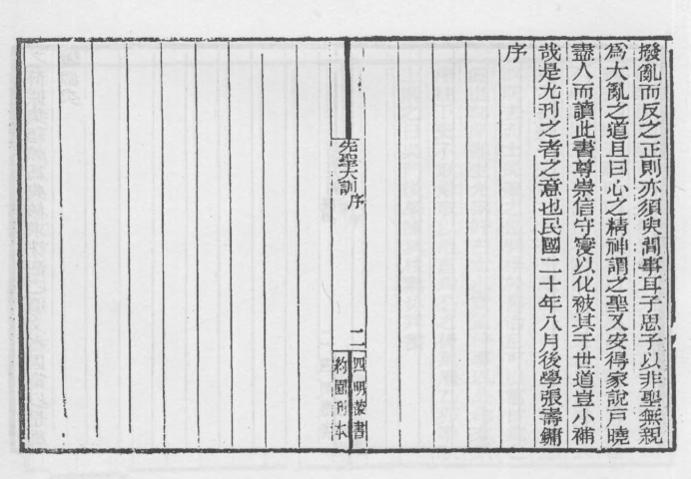 撥亂而反之正則亦須臾間事耳子思子以非聖無親
為大亂之道且曰心之精神謂之聖又安得家說戶曉
盡人而讀此書尊崇信守變以化被其于世道豈小補
哉是尤刊之者之意也民國二十年八月後學張壽鏞
序
先聖大訓 序
二
四明叢書
約園刊本